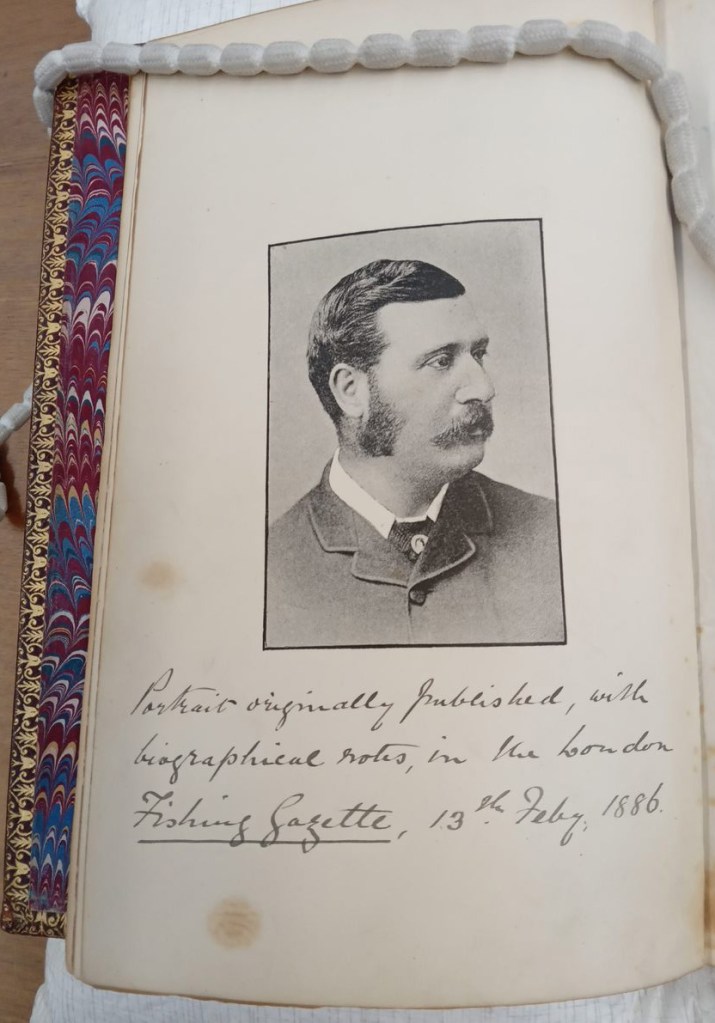 Portrait originally published, with
biographical notes, in the London
Fishing Gazette, 13th Feby, 1886.